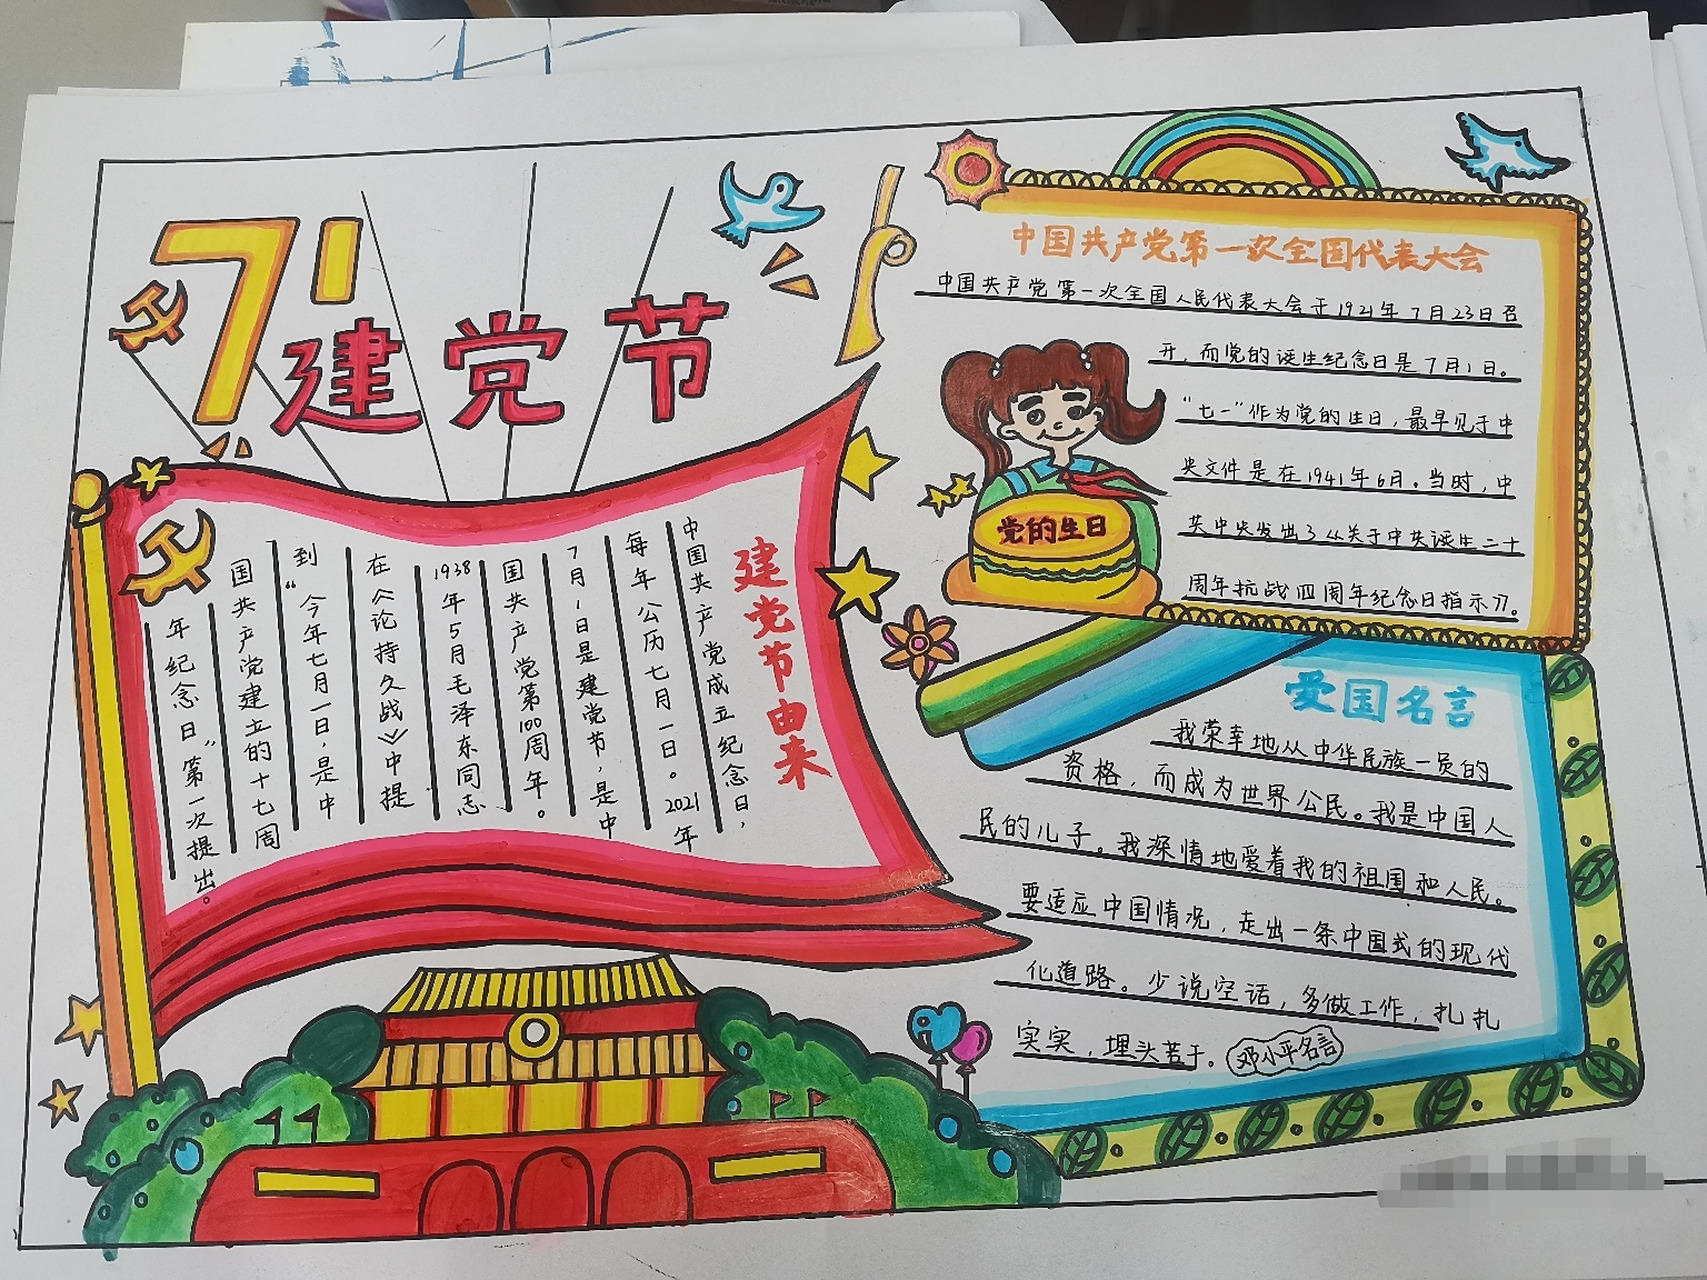 71
建党节
建党节由来
中国共产党成立纪念日，
每年公历七月一日。2021年
7月1日是建党节，是中
国共产党第100周年。
1938年5月毛泽东同志
在《论持久战》中提
到“今年七月一日，是中
国共产党建立的十七周
年纪念日”第一次提出。
中国共产党第一次全国代表大会
中国共产党第一次全国人民代表大会于1921年7月23日召
开，而党的诞生纪念日是7月1日。
“七一”作为党的生日，最早见于中
央文件是在1941年6月。当时，中
共中央发出了《关于中共诞生二十
周年抗战四周年纪念日指示》。
党的生日
爱国名言
我荣幸地从中华民族一员的
资格，而成为世界公民。我是中国人
民的儿子。我深情地爱着我的祖国和人民。
要适应中国情况，走出一条中国式的现代
化道路。少说空话，多做工作，扎扎
实实，埋头苦干。
邓小平名言